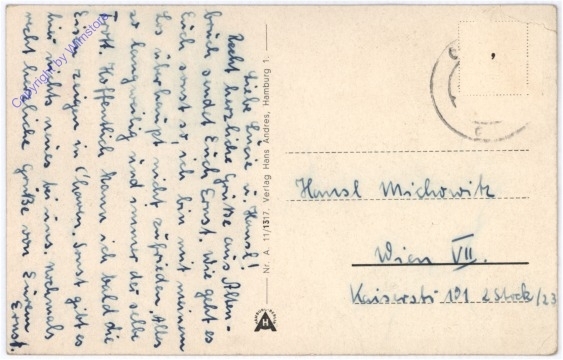 Liebe Lucie u. Hansl!
Recht herzliche Grüße aus Alten-
bruch sendet Euch Ernst. Wie geht es
Euch sonst so, ich bin mit meinem
Los überhaupt nicht zufrieden. Alles
so langweilig und immer der selbe
Trott. Hoffentlich kann ich bald die
Euren zeigen in Sonst gibt es
hier nichts neues bei uns. Nochmals
recht herzliche Grüße von Eurem
Ernst.
Nr. A. 11/1317. Verlag Hans Andres, Hamburg 1.
Hansl Michowitz
Wien VII.
Kaiserstr 101 2 Stock/23
H
Copyright by Wilnstore